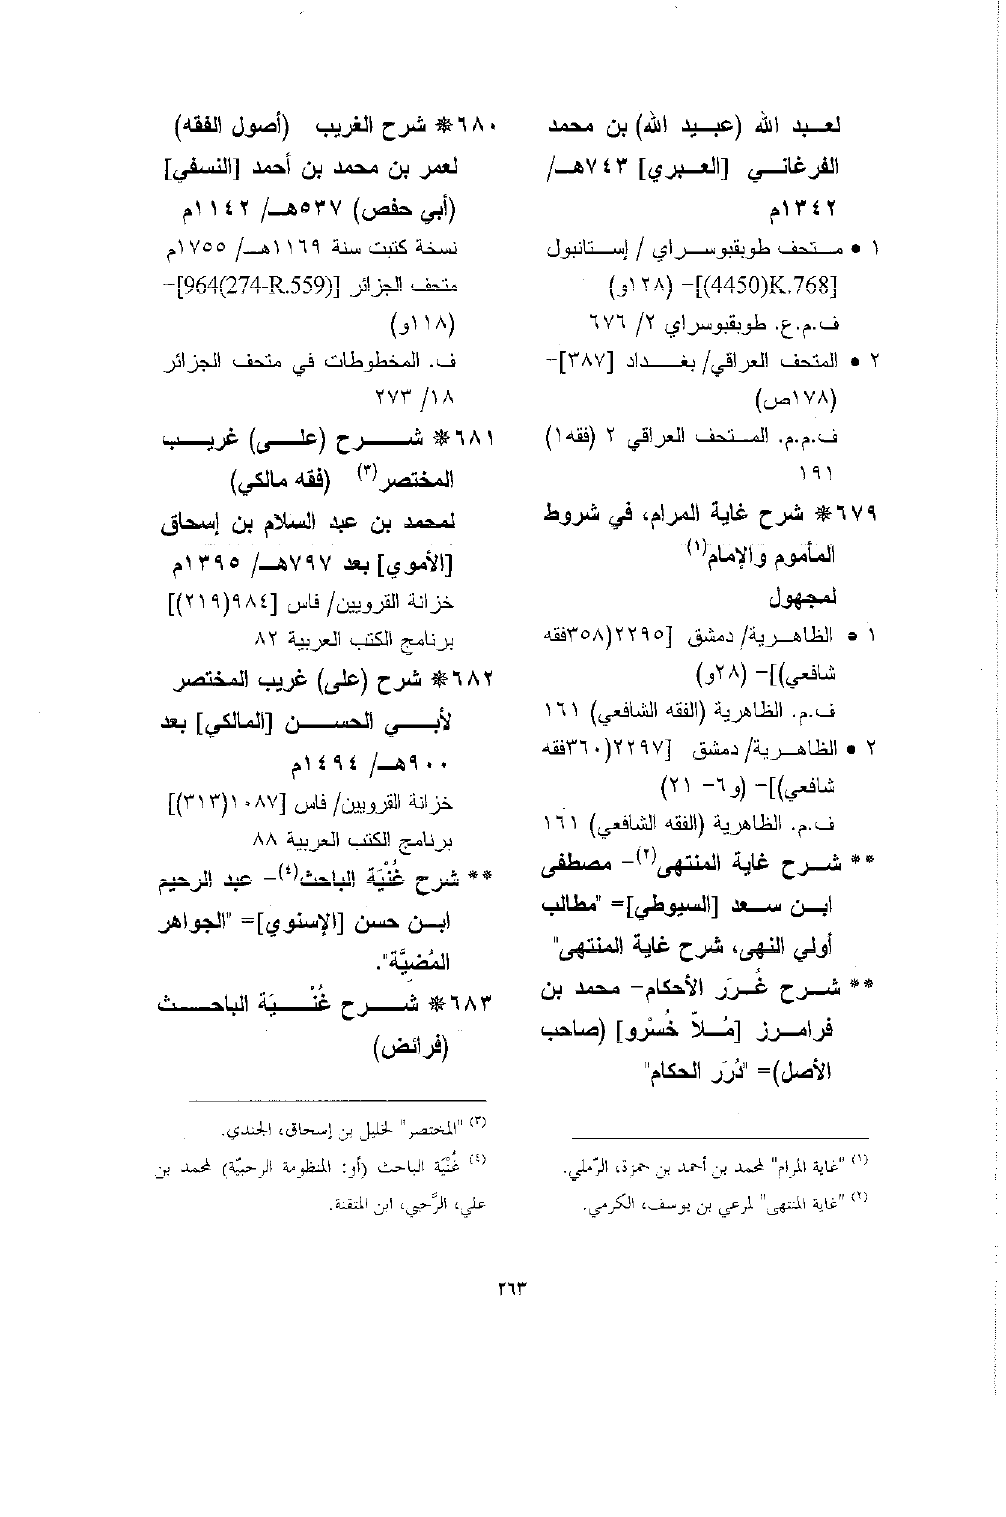 لعبد الله (عبيد الله) بن محمد
الفرغاني [العبري] ٧٤٣هـ/
١٣٤٢م
١ • متحف طوبقبوسراي / إستانبول
[4450)K.768)]- (١٢٨و)
ف.م.ع. طوبقبوسراي ٢/ ٦٧٦
٢ • المتحف العراقي/ بغداد [٣٨٧]-
(١٧٨ص)
ف.م.م. المتحف العراقي ٢ (فقه١)
١٩١
٦٧٩* شرح غاية المرام، في شروط
المأموم والإمام(١)
لمجهول
١ • الظاهرية/ دمشق [٢٢٩٥(٣٥٨فقه
شافعي)]- (٢٨و)
ف.م. الظاهرية (الفقه الشافعي) ١٦١
٢ • الظاهرية/ دمشق [٢٢٩٧(٣٦٠فقه
شافعي)]- (و٦- ٢١)
ف.م. الظاهرية (الفقه الشافعي) ١٦١
** شرح غاية المنتهى(٢)- مصطفى
ابن سعد [السيوطي]= "مطالب
أولي النهى، شرح غاية المنتهى"
** شرح غُرَر الأحكام- محمد بن
فرامرز [مُلاّ خُسْرو] (صاحب
الأصل)= "دُرَر الحكام"
(١) "غاية المرام" لمحمد بن أحمد بن حمزة، الرّملي.
(٢) "غاية المنتهى" لمرعي بن يوسف، الكرمي.
٦٨٠* شرح الغريب (أصول الفقه)
لعمر بن محمد بن أحمد [النسفي]
(أبي حفص) ٥٣٧هـ/ ١١٤٢م
نسخة كتبت سنة ١١٦٩هـ/ ١٧٥٥م
متحف الجزائر [964(274-R.559)]-
(١١٨و)
ف. المخطوطات في متحف الجزائر
١٨/ ٢٧٣
٦٨١* شرح (على) غريب
المختصر(٣) (فقه مالكي)
لمحمد بن عبد السلام بن إسحاق
[الأموي] بعد ٧٩٧هـ/ ١٣٩٥م
خزانة القرويين/ فاس [٩٨٤(٢١٩)]
برنامج الكتب العربية ٨٢
٦٨٢* شرح (على) غريب المختصر
لأبي الحسن [المالكي] بعد
٩٠٠هـ/ ١٤٩٤م
خزانة القرويين/ فاس [١٠٨٧(٣١٣)]
برنامج الكتب العربية ٨٨
** شرح غُنْيَة الباحث(٤)- عبد الرحيم
ابن حسن [الإسنوي]= "الجواهر
المُضِيَّة".
٦٨٣* شرح غُنْيَة الباحث
(فرائض)
(٣) "المختصر" لخليل بن إسحاق، الجندي.
(٤) غُنْيَة الباحث (أو: المنظومة الرحبيّة) لمحمد بن
علي، الرَّحبي، ابن المتقنة.
٢٦٣